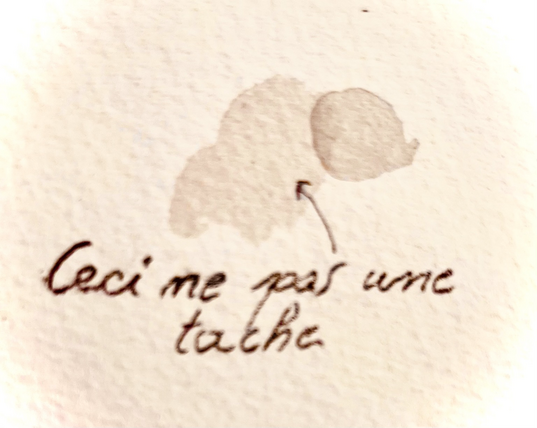 Ceci ne pas une
tache